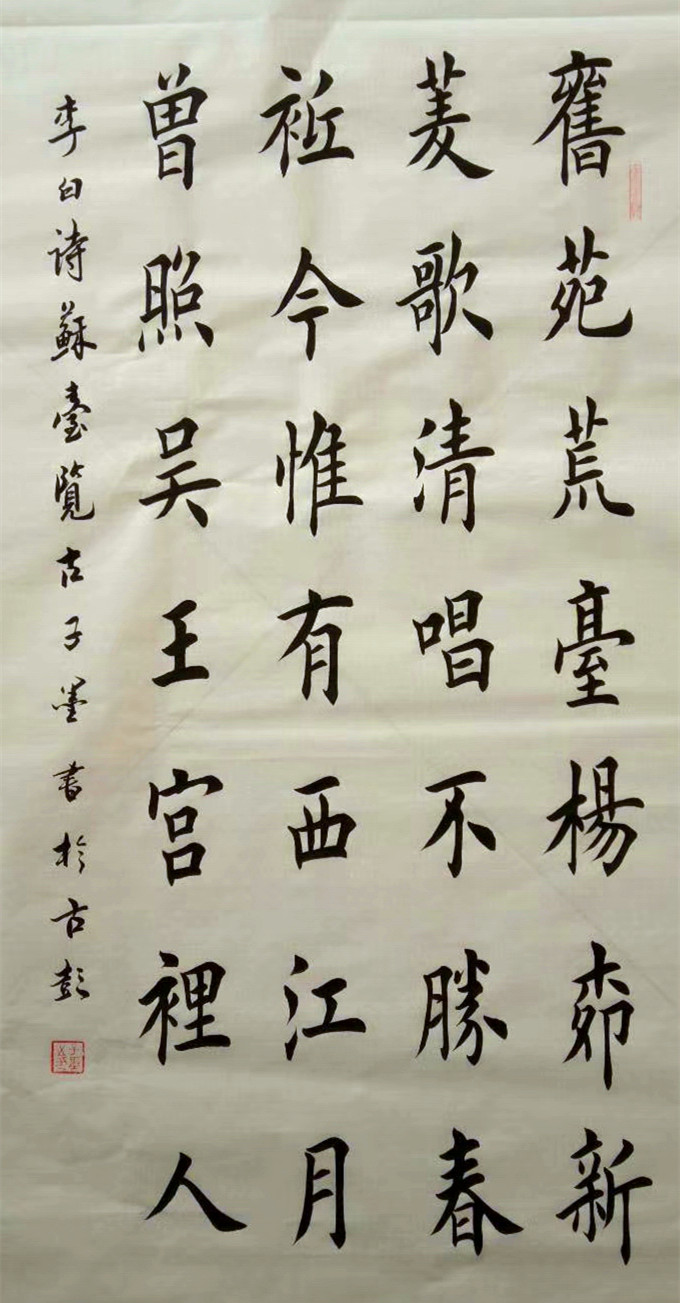 舊苑荒臺楊柳新
菱歌清唱不勝春
祗今惟有西江月
曾照吴王宮裡人
李白詩蘇臺覽古子墨書於古彭